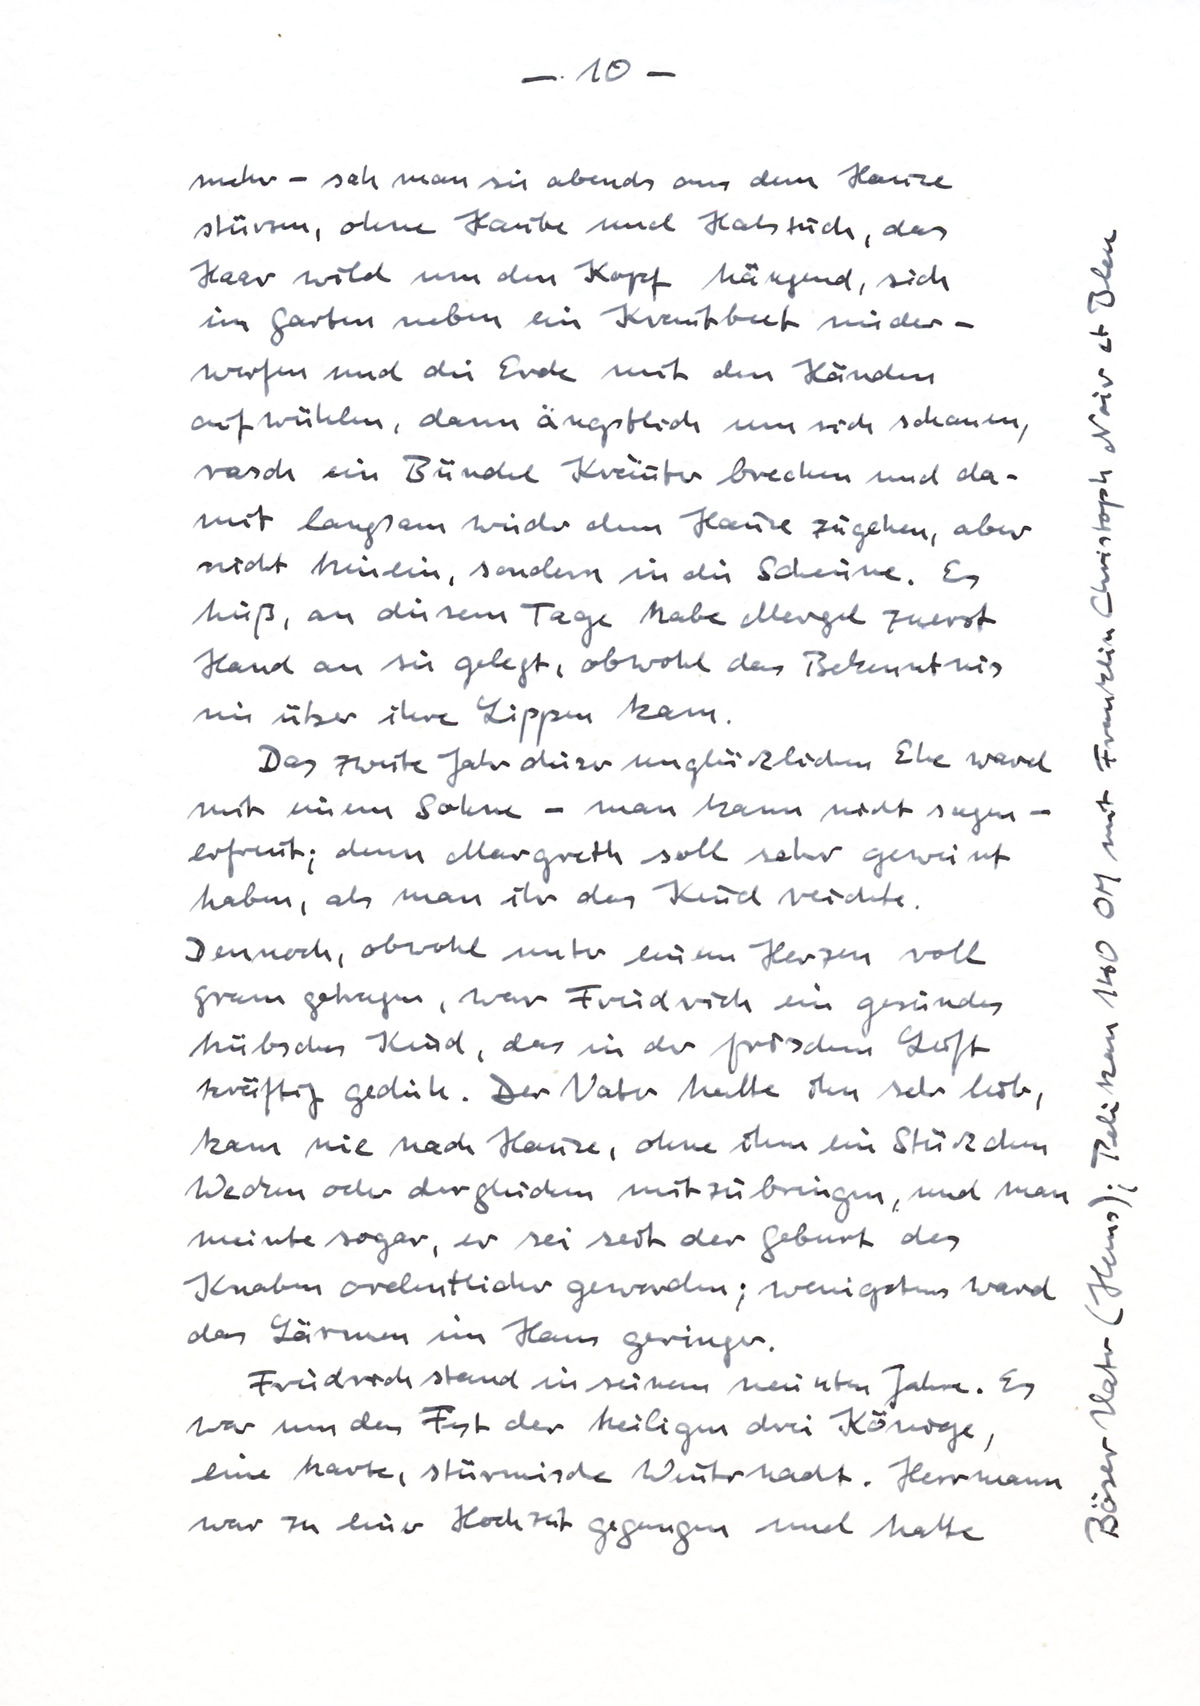 — 10 —
mehr – sah man sie abends aus dem Hause
stürzen, ohne Haube und Halstuch, das
Haar wild um den Kopf hängend, sich
im Garten neben ein Krautbeet nieder-
werfen und die Erde mit den Händen
aufwühlen, dann ängstlich um sich schauen,
rasch ein Bündel Kräuter brechen und da-
mit langsam wieder dem Hause zugehen, aber
nicht hinein, sondern in die Scheune. Es
hieß, an diesem Tage habe Mergel zuerst
Hand an sie gelegt, obwohl das Bekenntnis
nie über ihre Lippen kam.
Das zweite Jahr dieser unglücklichen Ehe ward
mit einem Sohne – man kann nicht sagen –
erfreut; denn Margreth soll sehr geweint
haben, als man ihr das Kind reichte.
Dennoch, obwohl unter einem Herzen voll
Gram getragen, war Friedrich ein gesundes
hübsches Kind, das in der frischen Luft
kräftig gedieh. Der Vater hatte ihn sehr lieb,
kam nie nach Hause, ohne ihm ein Stückchen
Wecken oder dergleichen mitzubringen, und man
meinte sogar, er sei seit der Geburt des
Knaben ordentlicher geworden; wenigstens ward
das Lärmen im Haus geringer.
Friedrich stand in seinem neunten Jahre. Es
war um das Fest der heiligen drei Könige,
eine harte, stürmische Winternacht. Herrmann
war zu einer Hochzeit gegangen und hatte
Böser Vater (Heins); Pelikan 140 OM mit Franklin Christoph Noir et Bleu